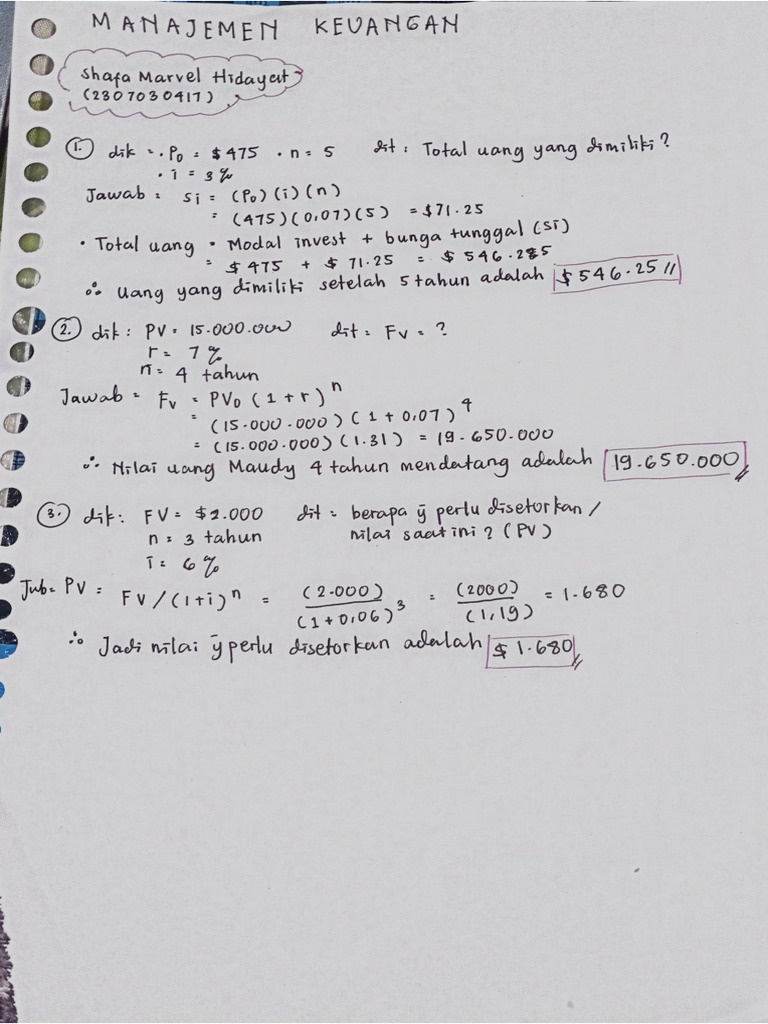 MANAJEMEN KEUANGAN
Shafa Marvel Hidayat
(2307030417)
1. dik = · P₀ = $475 · n = 5 dit : Total uang yang dimiliki?
· i = 3%
Jawab = Si = (P₀) (i) (n)
= (475) (0,07) (5) = $71.25
· Total uang = Modal invest + bunga tunggal (SI)
= $475 + $71.25 = $546.285
∴ Uang yang dimiliki setelah 5 tahun adalah $546.25 //
2. dik : PV = 15.000.000 dit = Fv = ?
r = 7%
n = 4 tahun
Jawab = Fv = PV₀ (1 + r)ⁿ
= (15.000.000) (1 + 0,07)⁴
= (15.000.000) (1.31) = 19.650.000
∴ Nilai uang Maudy 4 tahun mendatang adalah 19.650.000 //
3. dik : FV = $2.000 dit = berapa ȳ perlu disetorkan /
n = 3 tahun nilai saat ini ? (PV)
i = 6%
Jwb = PV = FV / (1+i)ⁿ = (2.000) / (1 + 0,06)³ = (2000) / (1,19) = 1.680
∴ Jadi nilai ȳ perlu disetorkan adalah $1.680 //